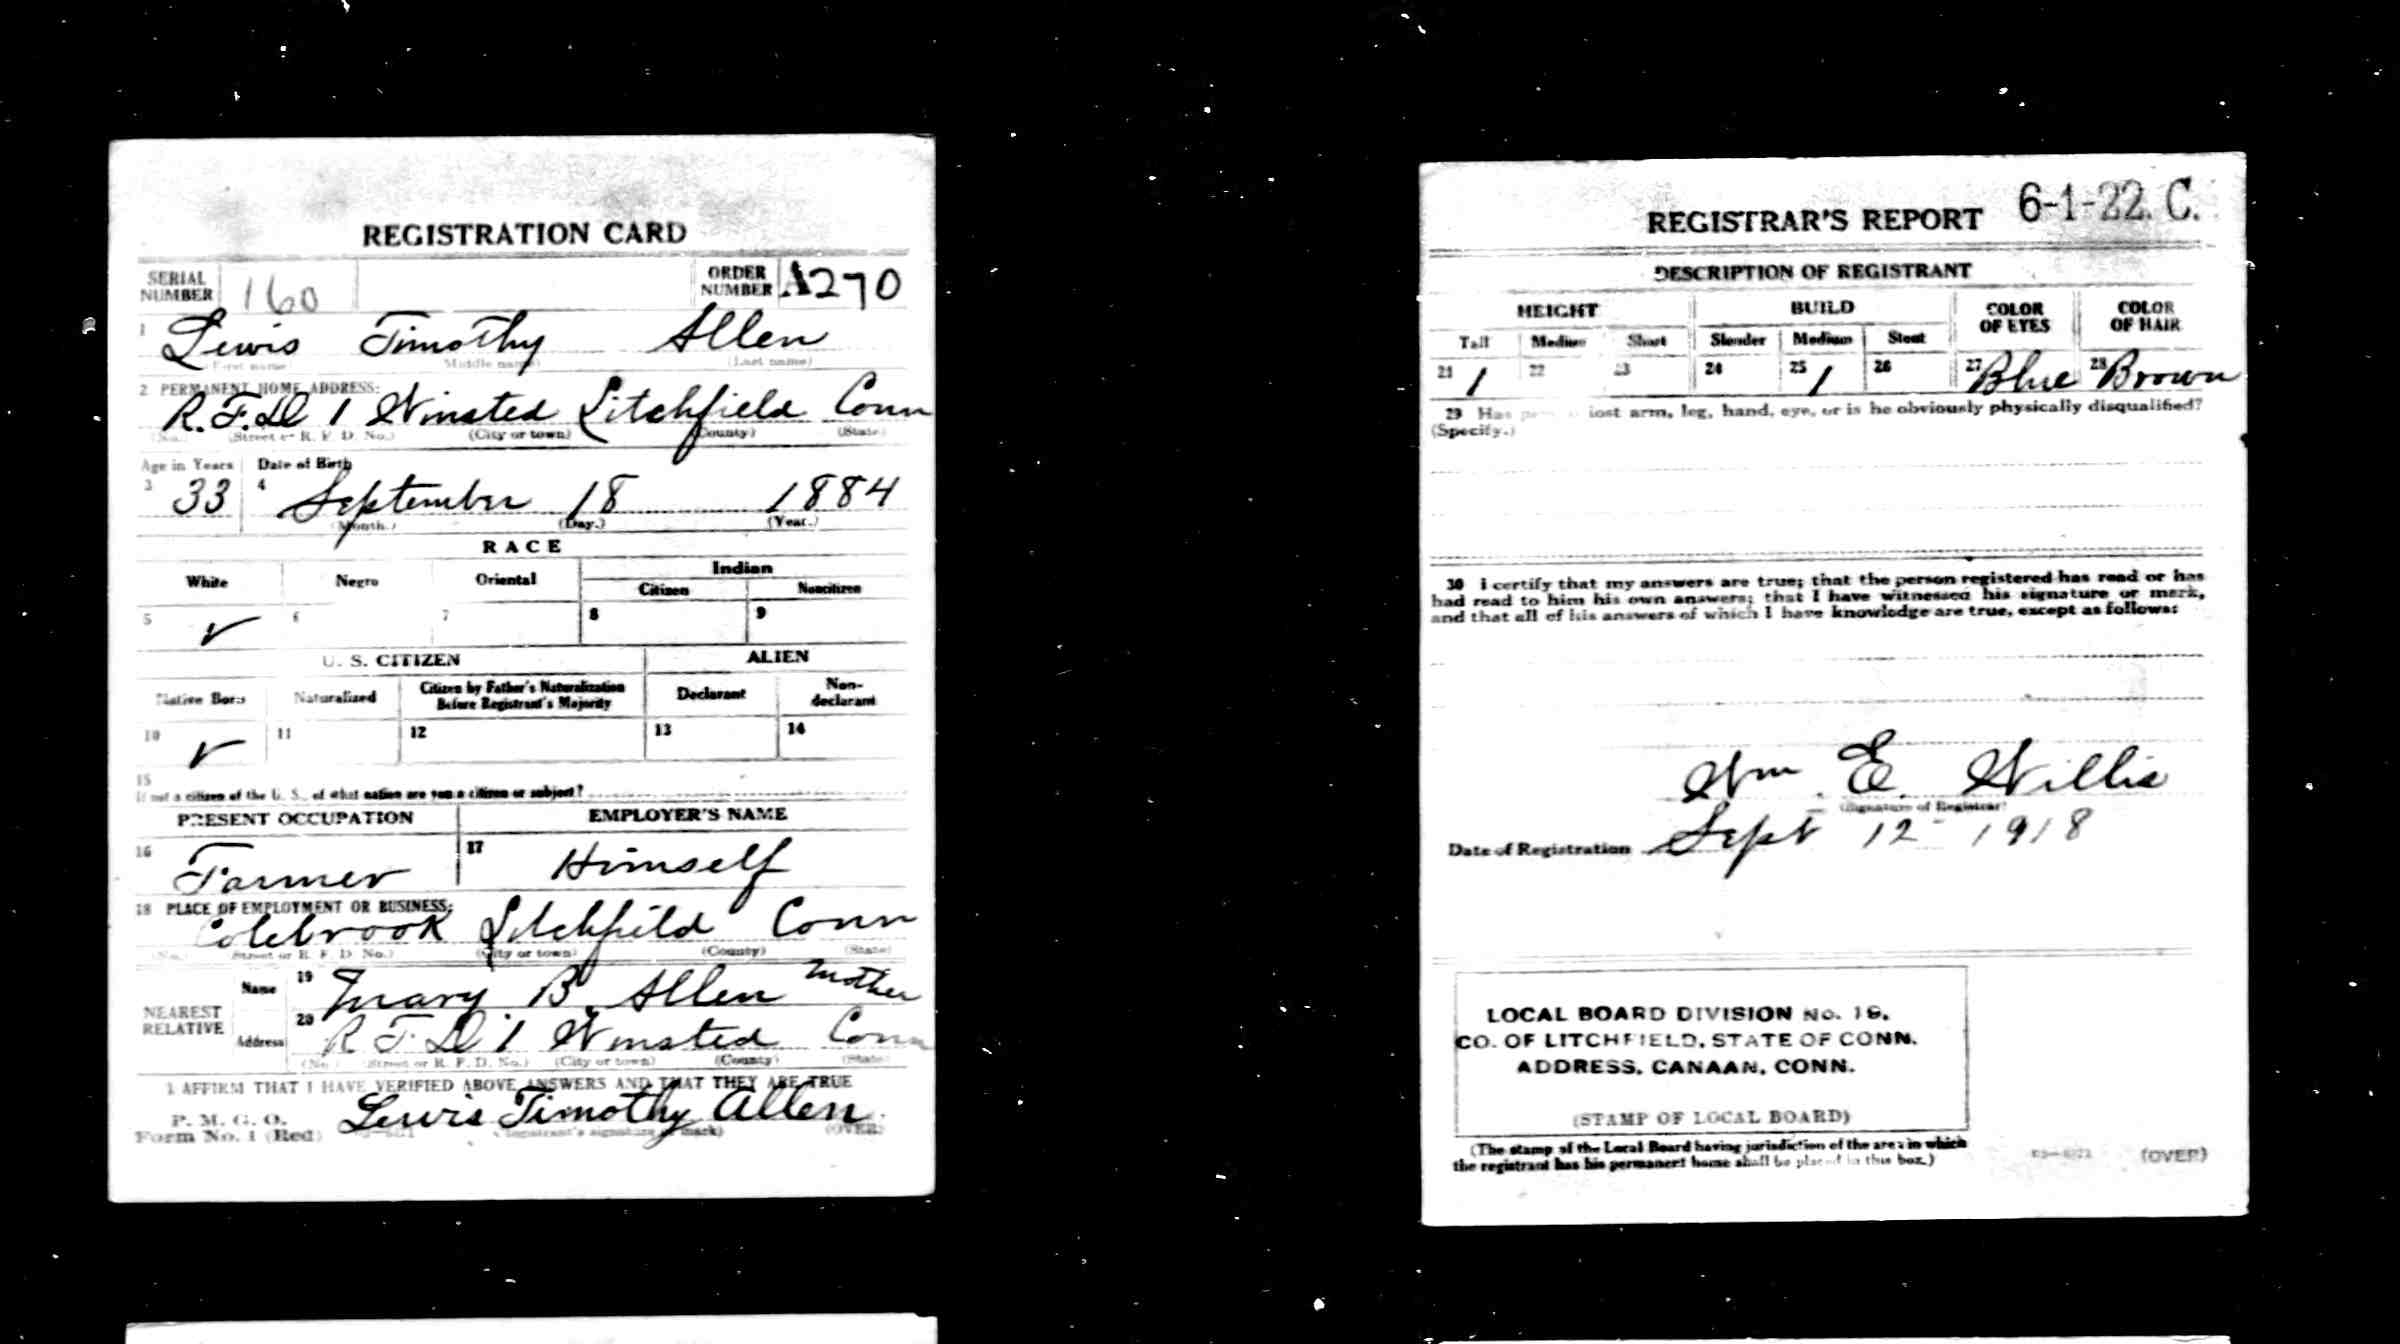 REGISTRATION CARD
SERIAL NUMBER 160 ORDER NUMBER A270
1 Lewis Timothy Allen
(First name) (Middle name) (Last name)
2 PERMANENT HOME ADDRESS:
R.F.D 1 Winsted Litchfield Conn
(No.) (Street or R. F. D. No.) (City or town) (County) (State)
Age in Years Date of Birth
3 33 4 September 18 1884
(Month.) (Day.) (Year.)
RACE
White Negro Oriental Indian
Citizen Noncitizen
5 ✓ 6 7 8 9
U. S. CITIZEN ALIEN
Native Born Naturalized Citizen by Father's Naturalization Before Registrant's Majority Declarant Non-declarant
10 ✓ 11 12 13 14
15
If not a citizen of the U. S., of what nation are you a citizen or subject?
PRESENT OCCUPATION EMPLOYER'S NAME
16 Farmer 17 Himself
18 PLACE OF EMPLOYMENT OR BUSINESS:
Colebrook Litchfield Conn
(No.) (Street or R. F. D. No.) (City or town) (County) (State)
NEAREST RELATIVE
Name 19 Mary B. Allen Mother
Address 20 R.F.D 1 Winsted Conn
(No.) (Street or R. F. D. No.) (City or town) (County) (State)
I AFFIRM THAT I HAVE VERIFIED ABOVE ANSWERS AND THAT THEY ARE TRUE
P. M. G. O.
Form No. 1 (Red) Lewis Timothy Allen
(Registrant's signature or mark) (OVER)
REGISTRAR'S REPORT 6-1-22. C.
DESCRIPTION OF REGISTRANT
HEIGHT BUILD COLOR OF EYES COLOR OF HAIR
Tall Medium Short Slender Medium Stout
21 / 22 23 24 25 / 26 27 Blue 28 Brown
29 Has lost arm, leg, hand, eye, or is he obviously physically disqualified?
(Specify.)
30 I certify that my answers are true; that the person registered has read or has
had read to him his own answers; that I have witnessed his signature or mark,
and that all of his answers of which I have knowledge are true, except as follows:
Wm. E. Willis
(Signature of Registrar)
Date of Registration Sept 12 - 1918
LOCAL BOARD DIVISION No. 19,
CO. OF LITCHFIELD, STATE OF CONN.
ADDRESS, CANAAN, CONN.
(STAMP OF LOCAL BOARD)
(The stamp of the Local Board having jurisdiction of the area in which
the registrant has his permanent home shall be placed in this box.)
(OVER)